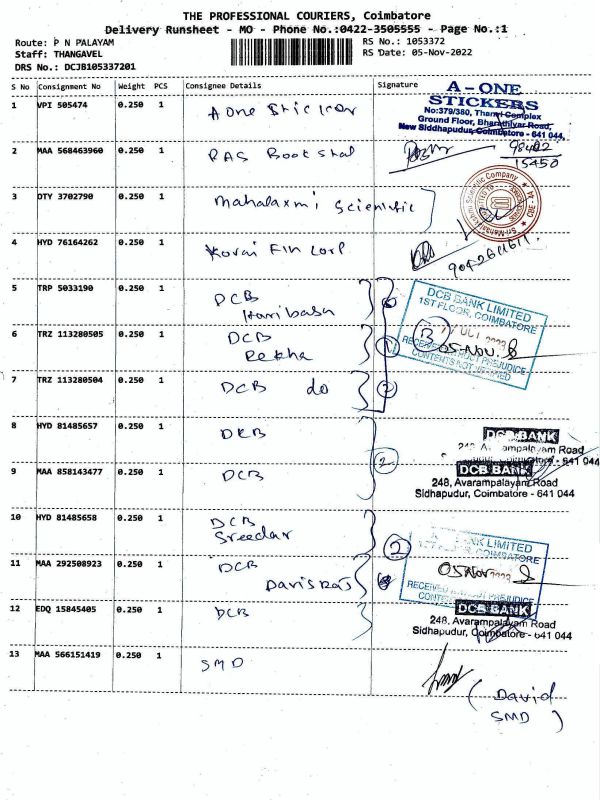 THE PROFESSIONAL COURIERS, Coimbatore
Delivery Runsheet - MO - Phone No.:0422-3505555 - Page No.:1
Route: P N PALAYAM
RS No.: 1053372
Staff: THANGAVEL
RS Date: 05-Nov-2022
DRS No.: DCJB105337201
S No Consignment No Weight PCS Consignee Details Signature
A-ONE
STICKERS
No:379/380, Complex
Ground Floor, Bharathiyar Road,
New Siddhapudur, Coimbatore - 641 044,
1 VPI 505474 0.250 1 A One Sticker
2 MAA 568463960 0.250 1 RAS Book Stal
15450
3 DTY 3702790 0.250 1 Mahalaxmi Scientific
4 HYD 76164262 0.250 1 Kovai Fin Corp
5 TRP 5033190 0.250 1 DCB
DCB BANK LIMITED
1ST FLOOR, COIMBATORE
05-NOV.
RECEIVED WITHOUT PREJUDICE
CONTENTS NOT VERIFIED
6 TRZ 113280505 0.250 1 DCB
Rekha
7 TRZ 113280504 0.250 1 DCB do
2
8 HYD 81485657 0.250 1 DCB
DCB BANK
2
9 MAA 858143477 0.250 1 DCB
DCB BANK
248, Avarampalayam Road
Sidhapudur, Coimbatore - 641 044
10 HYD 81485658 0.250 1 DCB
Sreedar
2
BANK LIMITED
COIMBATORE
05 Nov
RECEIVED PREJUDICE
11 MAA 292508923 0.250 1 DCB
12 EDQ 15845405 0.250 1 DCB
DCB BANK
248, Avarampalayam Road
Sidhapudur, Coimbatore - 641 044
13 MAA 566151419 0.250 1 SMD
(David
SMD)